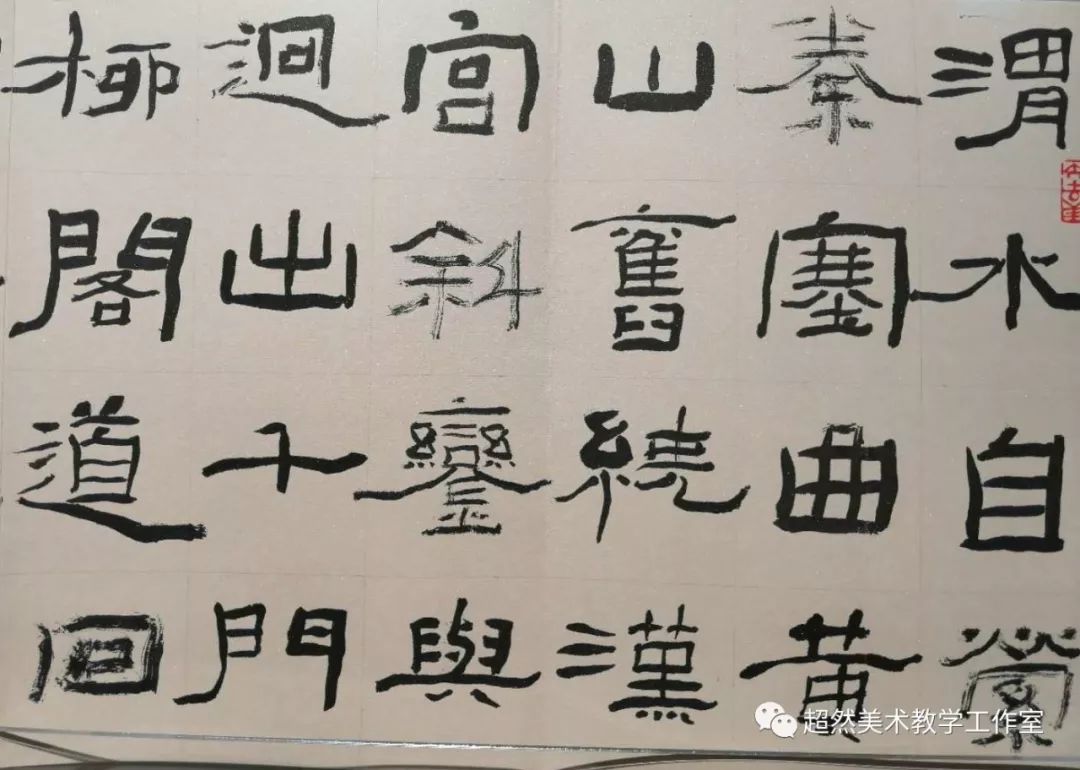 渭水自縈
秦塞曲黄
山舊繞漢
宫斜鑾與
逈出千門
柳閣道回
超然美术教学工作室